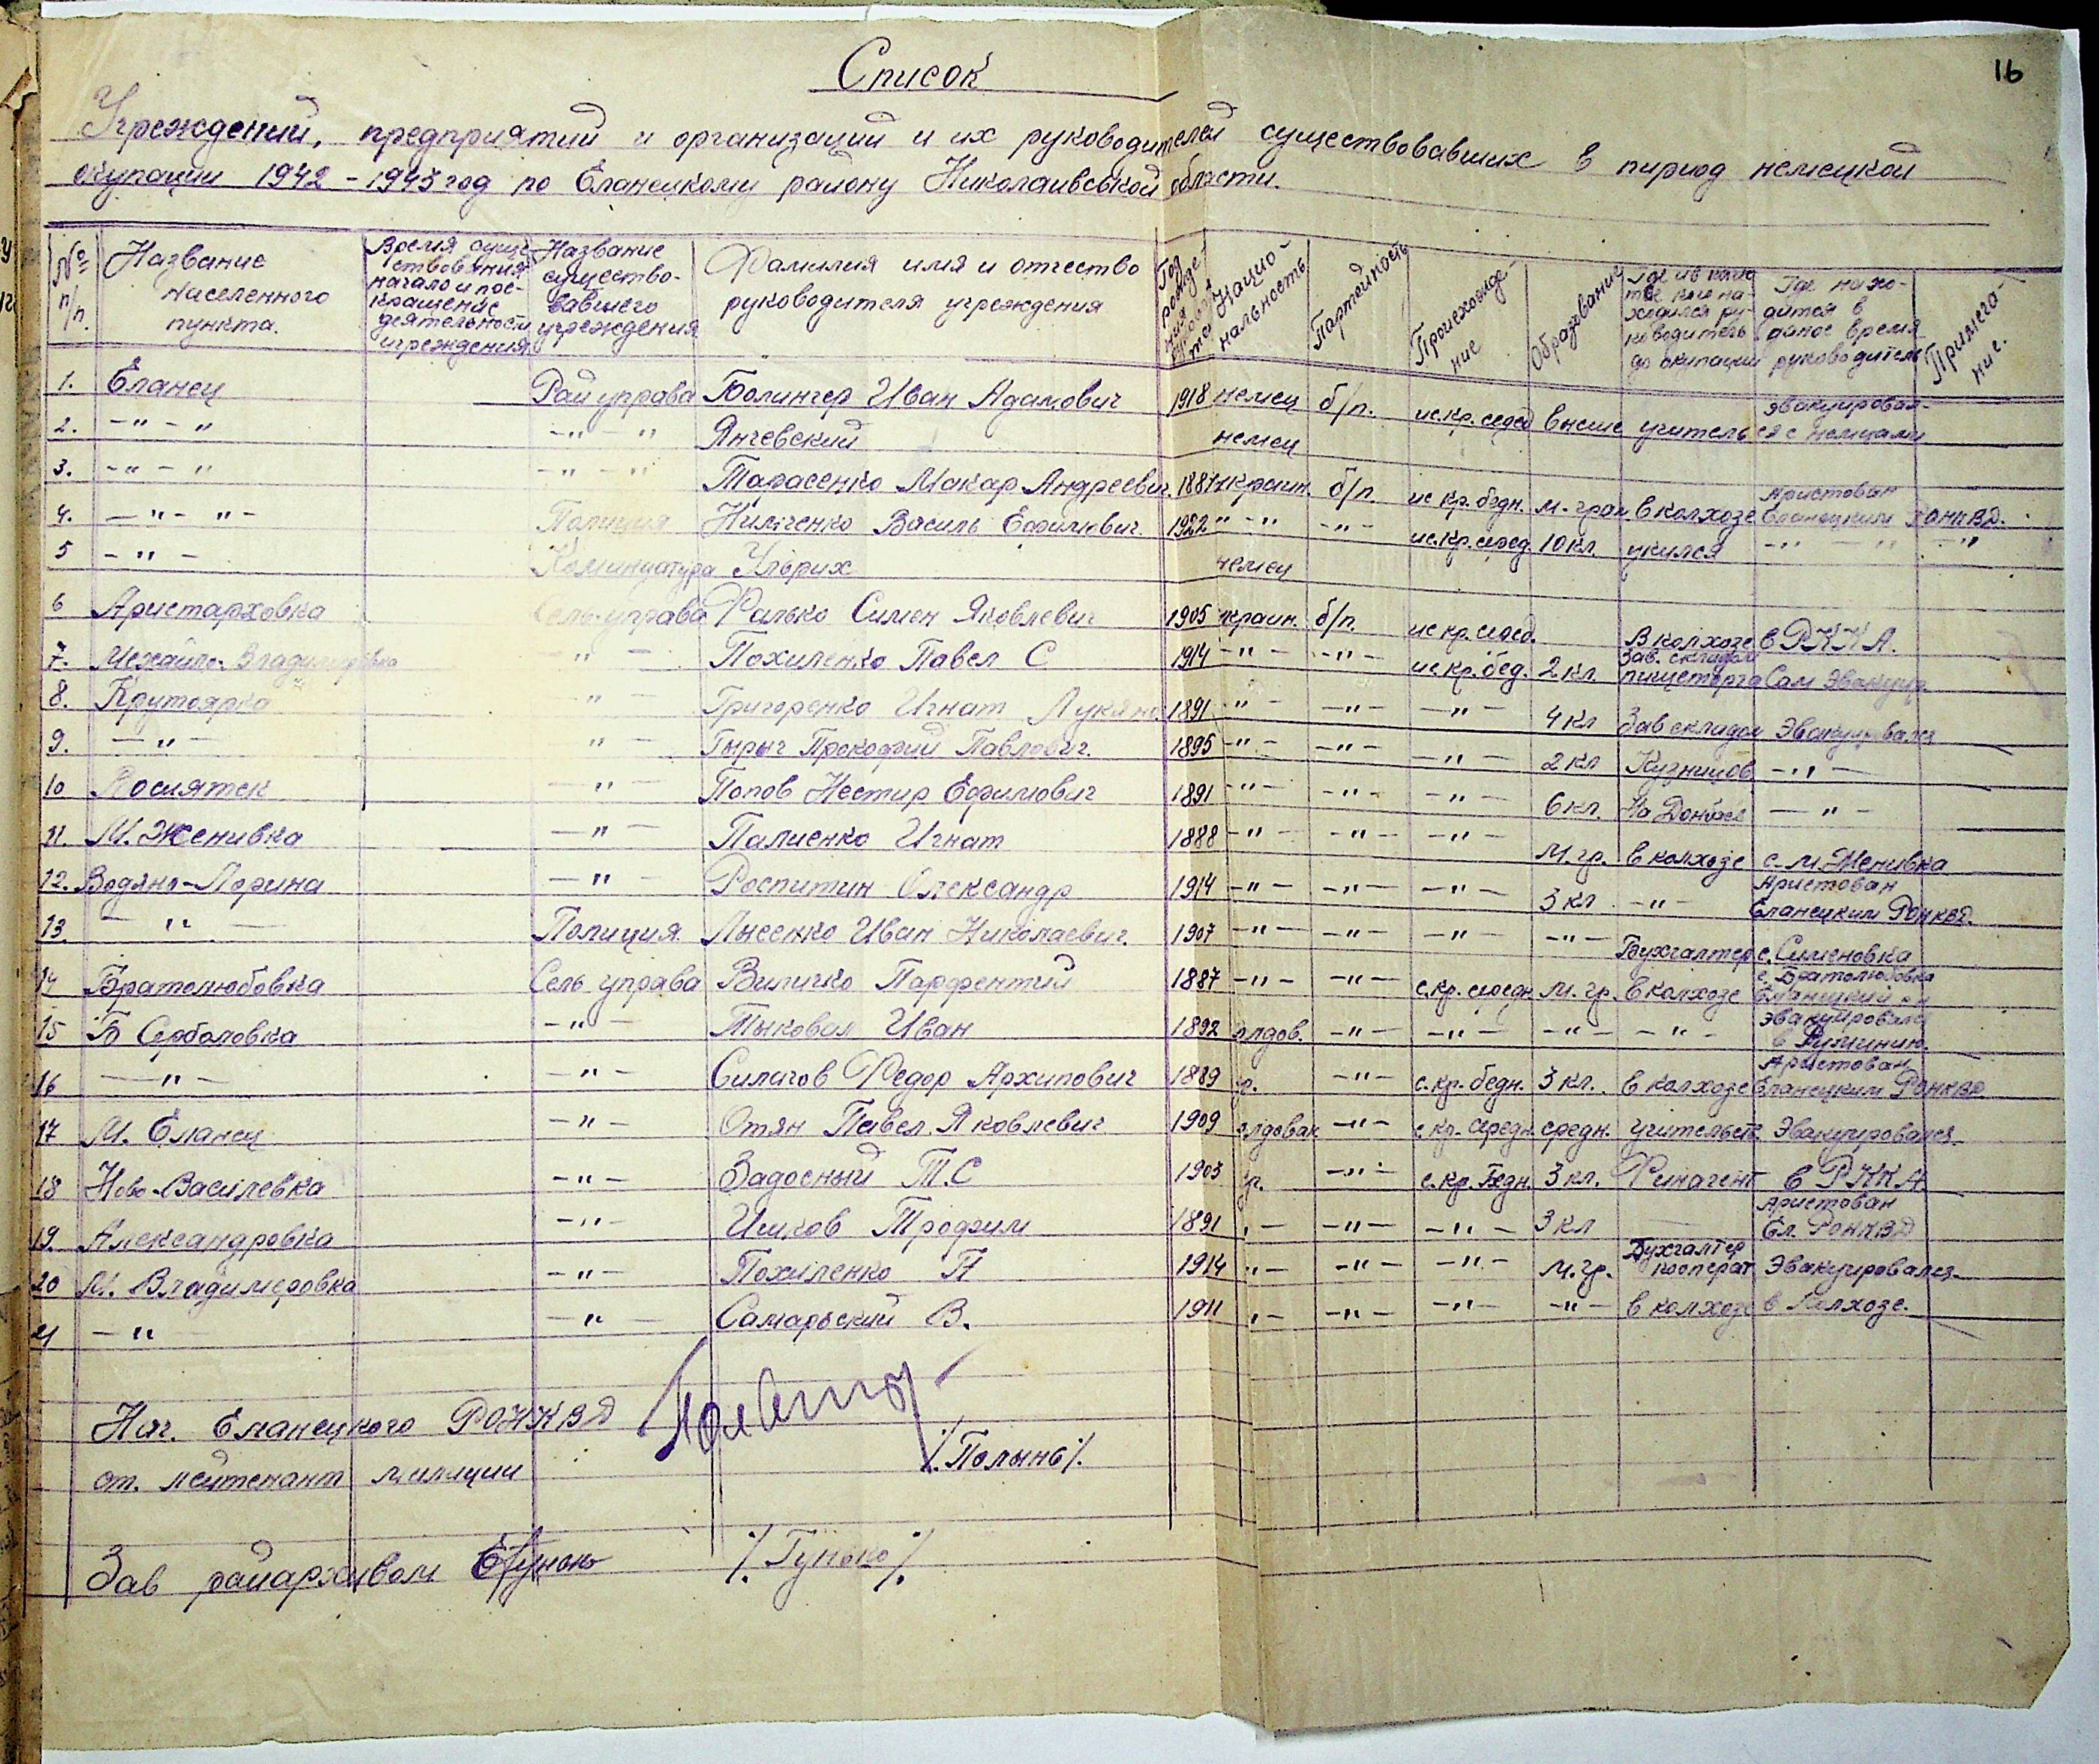 16
Список
Учреждений, предприятий и организаций и их руководителей существовавших в пириод немецкой
окупации 1942 - 1943 год по Еланецкому району Николаивськой области.
№ п/п. Название населенного пункта. Время существования начало и прекращение деятельности учреждения Название существовавшего учреждения Фамилия имя и отчество руководителя учреждения Год рождения Национальность Партейность Происхождение Образование Где и в качестве кого находился руководитель до окупации Где находится в даное время руководитель Примечание.
1. Еланец Рай управа Болингер Иван Адамович 1918 немец б/п. ис.кр. серед высше учитель эвакуировался с немцами
2. -"-" -"-" Янчевский немец
3. -"-" -"-" Тарасенко Макар Андреевич. 1881 украин. б/п. ис кр. бедн. м-грам. в колхозе Аристован Еланецким РОНКВД.
4. -"-"- Полиция Нильченко Василь Ефимович. 1922 "-" -"- ис.кр. серед. 10 кл. учился -"-"-"
5 -"- Коминдатура Ульрих немец
6 Аристарховка Сель-управа Фалько Симен Яковлевич 1905 украин. б/п. ис кр. серед. В колхозе в РККА.
7. Михайло-Владимировка -"- Похиленко Павел С 1914 -"- -"- ис кр. бед. 2 кл. Зав. складом пищеторга Сам эвакуир.
8. Крутоярка -"- Григоренко Игнат Лукяно. 1891 -"- -"- -"- 4 кл Зав складом Эвакуировался
9. -"- -"- Гырыч Прокофий Павлович. 1895 -"- -"- -"- 2 кл -"-
10 Косиятск -"- Попов Нестир Ефимович 1891 -"- -"- -"- 6 кл. На Донбасе -"-
11. М. Женивка -"- Палиенко Игнат 1888 -"- -"- -"- М. гр. в колхозе с. М. Женивка
12. Водяно-Лорина -"- Роспитин Олександр 1914 -"- -"- -"- 3 кл. -"- Аристован Еланецким РОНКВД.
13. -"- Полиция Лысенко Иван Николаевич. 1907 -"- -"- -"- -"- Бухгалтер с. Сименовка
14 Братолюбовка Сель управа Виличко Парфентий 1887 -"- -"- с.кр. середн М. гр. в колхозе с. Братолюбовка Еланецкий р-н
15 Б Серболовка -"- Тыковал Иван 1892 олдов. -"- -"- -"- -"- Эвакуировался в Руминию.
16 -"- -"- Силагов Федор Архипович 1889 р. -"- с.кр. бедн. 3 кл. в колхозе Аристован Еланецким РОНКВД
17 М. Еланец -"- Отян Павел Яковлевич 1909 олдован -"- с кр. середн. средн. учительст. Эвакуировался
18 Ново-Василевка -"- Задосный Т.С 1903 р. -"- с.кр. бедн. 3 кл. Финагент в РККА
19. Александровка -"- Ишков Трофим 1891 "- -"- -"- 3 кл Аристован Ел. РОНКВД
20 М. Владимеровка -"- Похиленко П 1914 "- -"- -"- М. гр. Бухгалтер кооперат. Эвакуировался
21 -"- -"- Самарьский В. 1911 "- -"- -"- -"- в колхозе в колхозе.
Нач. Еланецкого РОНКВД
ст. лейтенант милиции /. Полынь /.
Зав райархивом ЕГунько /. Гунько /.